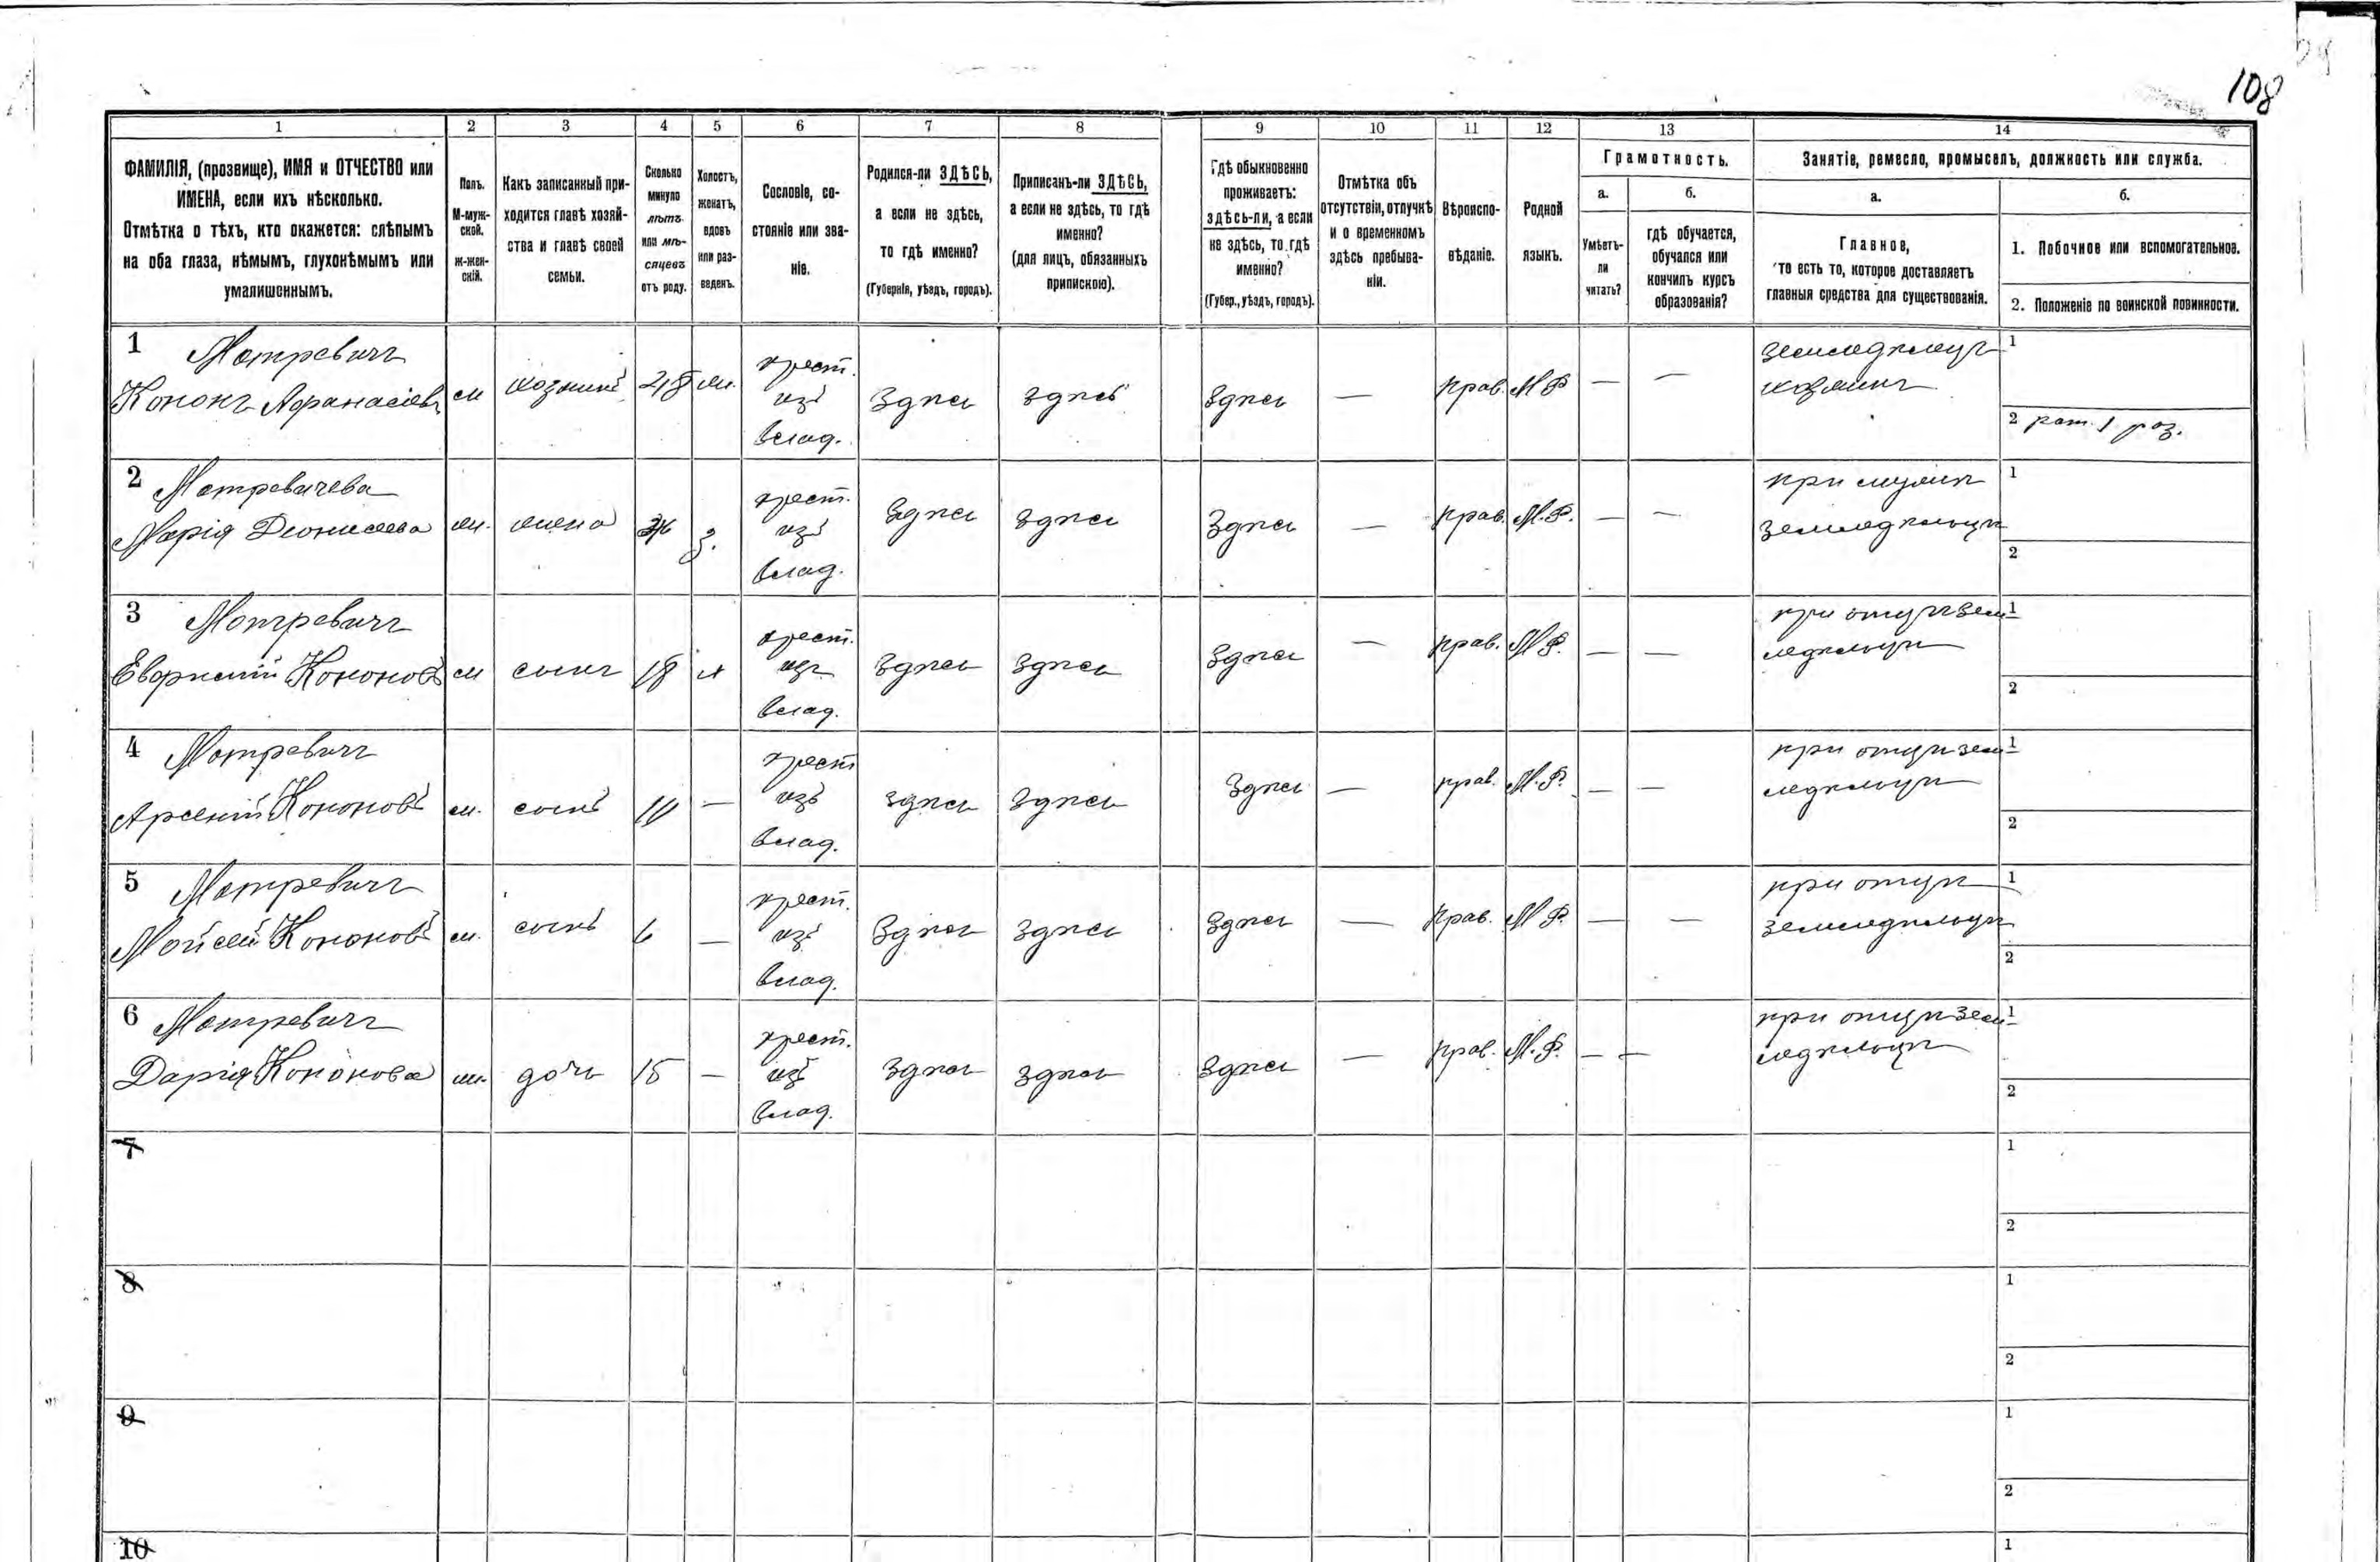 108
1 2 3 4 5 6 7 8 9 10 11 12 13 14
ФАМИЛІЯ, (прозвище), ИМЯ и ОТЧЕСТВО или
ИМЕНА, если ихъ нѣсколько.
Отмѣтка о тѣхъ, кто окажется: слѣпымъ
на оба глаза, нѣмымъ, глухонѣмымъ или
умалишеннымъ.
Полъ.
М-муж-
ской.
ж-жен-
скій.
Какъ записанный при-
ходится главѣ хозяй-
ства и главѣ своей
семьи.
Сколько
минуло
лѣтъ
или мѣ-
сяцевъ
отъ роду.
Холостъ,
женатъ,
вдовъ
или раз-
веденъ.
Сословіе, со-
стояніе или зва-
ніе.
Родился-ли ЗДѢСЬ,
а если не здѣсь,
то гдѣ именно?
(Губернія, уѣздъ, городъ).
Приписанъ-ли ЗДѢСЬ,
а если не здѣсь, то гдѣ
именно?
(для лицъ, обязанныхъ
припискою).
Гдѣ обыкновенно
проживаетъ:
здѣсь-ли, а если
не здѣсь, то гдѣ
именно?
(Губер., уѣздъ, городъ).
Отмѣтка объ
отсутствіи, отлучкѣ
и о временномъ
здѣсь пребыва-
ніи.
Вѣроиспо-
вѣданіе.
Родной
языкъ.
Грамотность.
а. б.
Умѣетъ-
ли
читать?
гдѣ обучается,
обучался или
кончилъ курсъ
образованія?
Занятіе, ремесло, промыселъ, должность или служба.
а. б.
Главное,
то есть то, которое доставляетъ
главныя средства для существованія.
1. Побочное или вспомогательное.
2. Положеніе по воинской повинности.
1 Мотревичъ
Кононъ Афанасіевъ
м хозяинъ 48 ж.
крест.
изъ
влад.
здѣсь здѣсь здѣсь — Прав. М Р — —
земледѣлецъ
хозяинъ
1
2 рат. 1 раз.
2 Мотревичева
Марія Діонисіева
ж. жена з.
крест.
изъ
влад.
здѣсь здѣсь здѣсь — Прав. М.Р. — —
при мужѣ
земледѣльцѣ
1
2
3 Мотревичъ
Кононовъ
м сынъ 18 х
крест.
изъ
влад.
здѣсь здѣсь здѣсь — Прав. М Р. — —
при отцѣ зем
ледѣльцѣ
1
2
4 Мотревичъ
Арсеній Кононовъ
м. сынъ —
крест
изъ
влад.
здѣсь здѣсь здѣсь — прав. М.Р. — —
при отцѣ зем
ледѣльцѣ
1
2
5 Мотревичъ
Мойсей Кононовъ
м. сынъ 6 —
крест.
изъ
влад.
здѣсь здѣсь здѣсь — Прав. М Р. — —
при отцѣ
земледѣльцѣ
1
2
6 Мотревичъ
Дарія Кононова
ж. дочь 15 —
крест.
изъ
влад.
здѣсь здѣсь здѣсь — Прав. М.Р. — —
при отцѣ зем
ледѣльцѣ
1
2
7
1
2
8
1
2
9
1
2
10
1